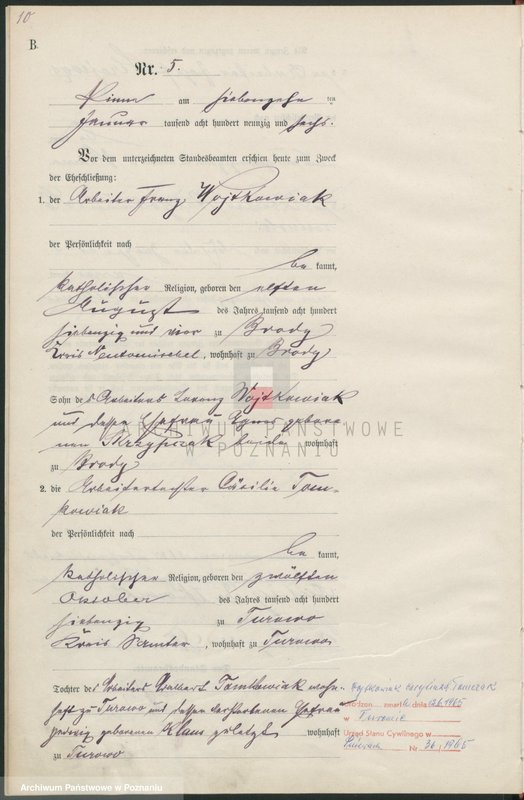 10
B.
Nr. 5.
Pinne am siebenzehn ten
Januar tausend acht hundert neunzig und sechs.
Vor dem unterzeichneten Standesbeamten erschien heute zum Zweck
der Eheschließung:
1. der Arbeiter Franz Wojtkowiak
der Persönlichkeit nach
be kannt,
katholischer Religion, geboren den elften
August des Jahres tausend acht hundert
siebenzig und vier zu Brody
Kreis Neutomischel, wohnhaft zu Brody
Sohn des Arbeiters Lorenz Wojtkowiak
und dessen Ehefrau Agnes gebore-
nen beide wohnhaft
zu Brody
ARCHIWUM PAŃSTWOWE
W POZNANIU
2. die Arbeitertochter Cäcilie Tom-
kowiak
der Persönlichkeit nach
be kannt,
katholischer Religion, geboren den zwölften
Oktober des Jahres tausend acht hundert
siebenzig zu Turowo
Kreis Samter, wohnhaft zu Turowo
Tochter des Arbeiters Adalbert Tomkowiak wohn-
haft zu Turowo und dessen verstorbenen Ehefrau
Hedwig geborenen Klaus zuletzt wohnhaft
zu Turowo
Wojtkowiak Tomczak
zmarł dnia 1965
w Turowie
Urząd Stanu Cywilnego w
Nr. 36/1965
Archiwum Państwowe w Poznaniu